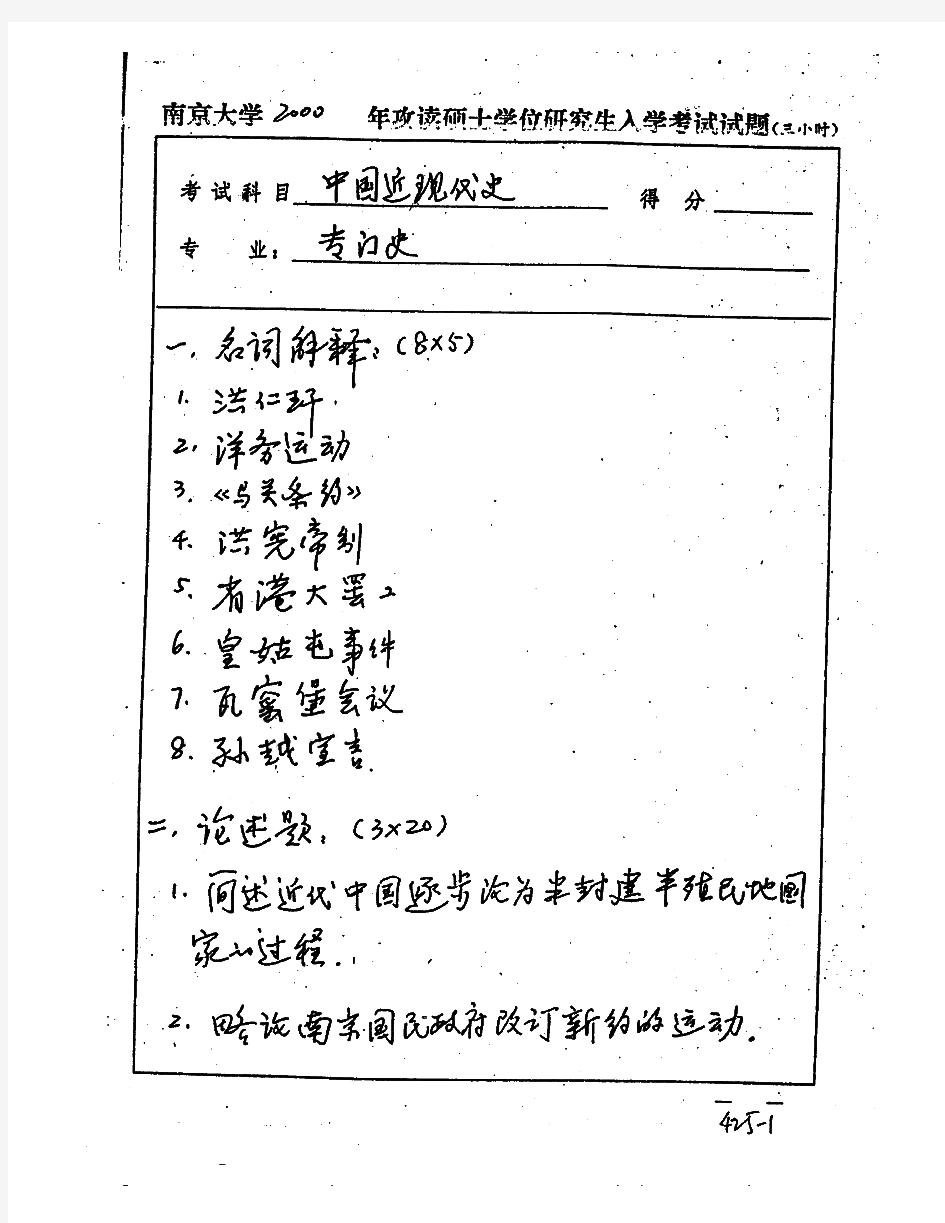 南京大学 2000 年攻读硕士学位研究生入学考试试题(三小时)
考试科目 中国近现代史 得分
专业: 专门史
一、名词解释:(8×5)
1. 洪仁玕.
2. 洋务运动
3. 《马关条约》
4. 洪宪帝制
5. 省港大罢工
6. 皇姑屯事件
7. 瓦窑堡会议
8. 孙越宣言.
二、论述题:(3×20)
1. 简述近代中国逐步沦为半封建半殖民地国
家的过程.
2. 略论南京国民政府改订新约的运动.
425-1